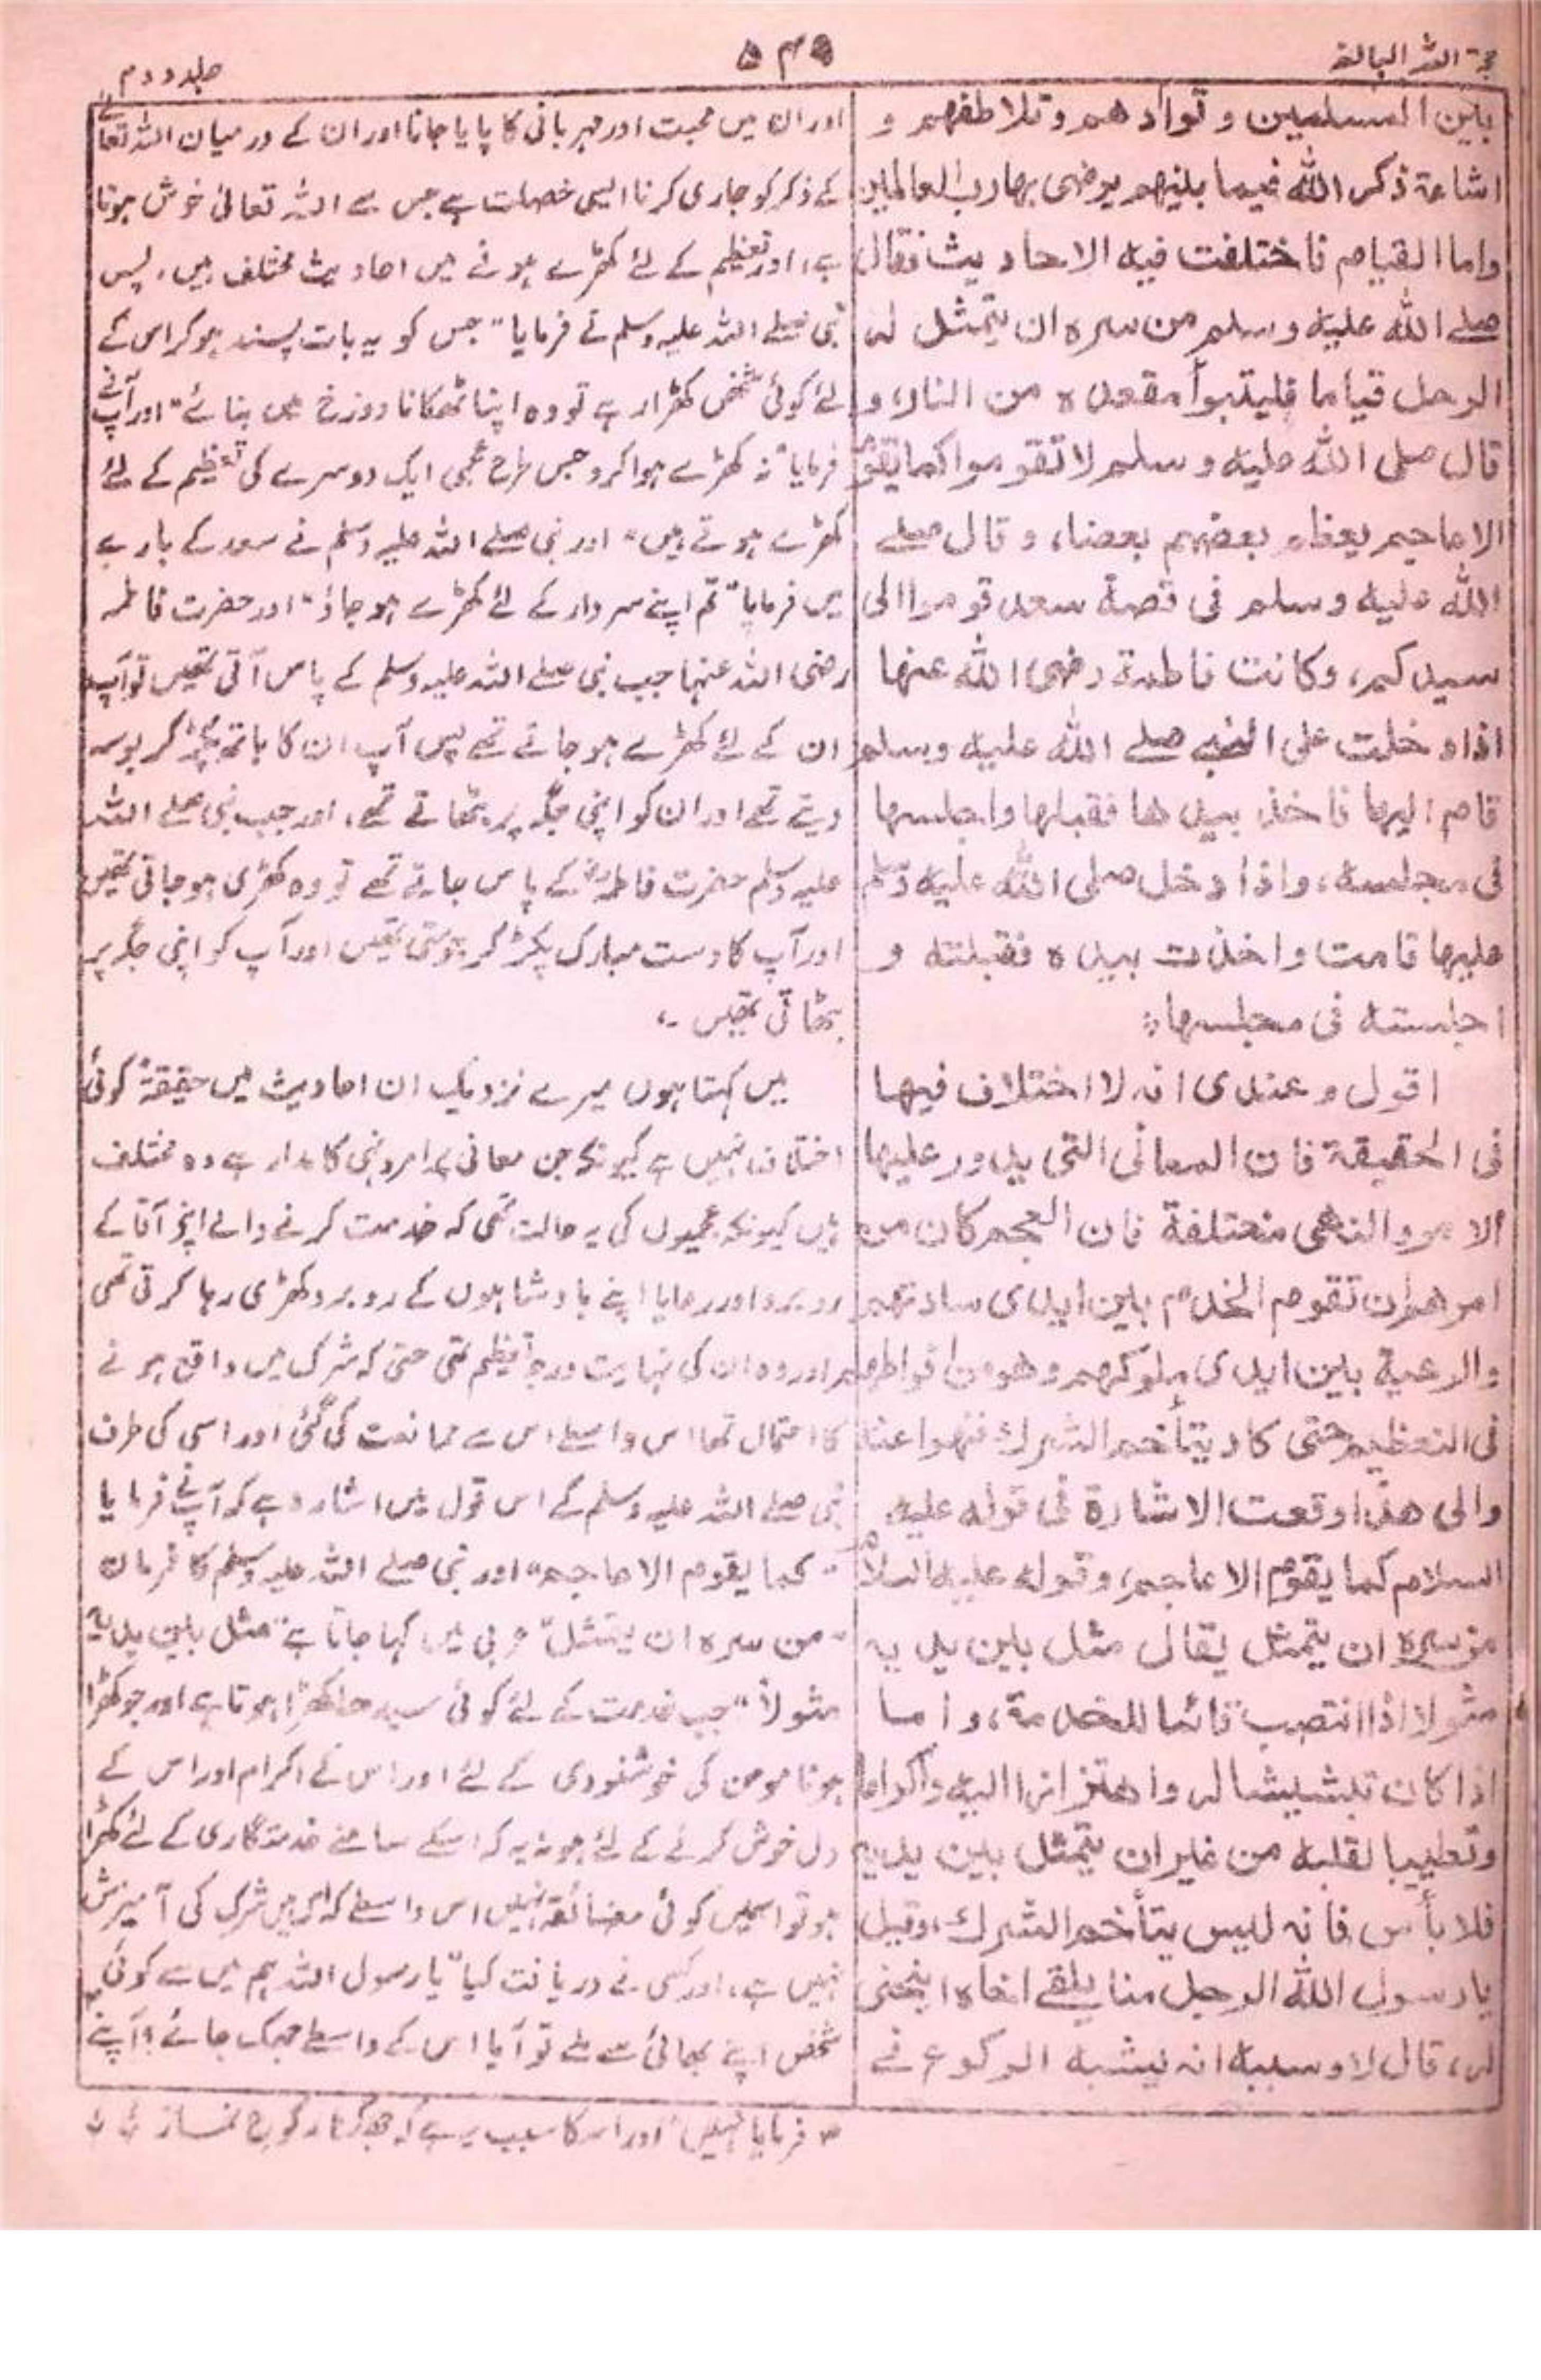 حجۃ اللہ البالغہ
۵۴۵
جلد دوم
بين المسلمين و توادهم وتلاطفهم و
اشاعة ذكر الله فيما بينهم يرضى بها رب العالمين
واما القيام فاختلفت فيه الاحاديث فقال
صلے الله عليه وسلم من سره ان يتمثل له
الرجل قياما فليتبوأ مقعده من النار، و
قال صلى الله عليه وسلم لا تقوموا كما يقوم
الاعاجم يعظم بعضهم بعضا، وقال صلے
الله عليه وسلم فى قصة سعد قوموا الى
سيدكم، وكانت فاطمة رضى الله عنها
اذا دخلت على النبے صلے الله عليه وسلم
قام اليها فاخذ بيدها فقبلها واجلسها
فى مجلسه، واذا دخل صلى الله عليه وسلم
عليها قامت واخذت بيده فقبلته و
اجلسته فى مجلسها:
اقول وعندى انه لا اختلاف فيها
فى الحقيقة فان المعانى التى يدور عليها
الامر والنهى مختلفة فان العجم كان من
امرهم ان تقوم الخدم بين ايدى سادتهم
والرعية بين ايدى ملوكهم وهو من افراطهم
فى التعظيم حتى كاد يتأخم الشرك فنهوا عنه
والى هذا وقعت الاشارة فى قوله عليه
السلام كما يقوم الاعاجم، وقوله عليه السلام
من سره ان يتمثل يقال مثل بين يديه
مثولا اذا انتصب قائما للخدمة، واما
اذا كان تبشيشا له واهتزازا اليه واكراما
وتطييبا لقلبه من غير ان يتمثل بين يديه
فلا بأس فانه ليس يتأخم الشرك، وقيل
يا رسول الله الرجل منا يلقے اخاه اينحنى
له، قال لا وسببه انه يشبه الركوع فے
اور ان میں محبت اور مہربانی کا پایا جانا اور ان کے درمیان اللہ تعالے
کے ذکر کو جاری کرنا ایسی خصلت ہے جس سے اللہ تعالیٰ خوش ہوتا
ہے، اور تعظیم کے لئے کھڑے ہونے میں احادیث مختلف ہیں، پس
نبی صلے اللہ علیہ وسلم نے فرمایا "جس کو یہ بات پسند ہو کر اس کے
لئے کوئی شخص کھڑا رہے تو وہ اپنا ٹھکانا دوزخ میں بنائے" اور آپ نے
فرمایا "نہ کھڑے ہوا کرو جس طرح عجمی ایک دوسرے کی تعظیم کے لئے
کھڑے ہوتے ہیں" اور نبی صلے اللہ علیہ وسلم نے سعد کے بارے
میں فرمایا "تم اپنے سردار کے لئے کھڑے ہو جاؤ" اور حضرت فاطمہ
رضی اللہ عنہا جب نبی صلے اللہ علیہ وسلم کے پاس آتی تھیں تو آپ
ان کے لئے کھڑے ہو جاتے تھے پس آپ ان کا ہاتھ پکڑ کر بوسہ
دیتے تھے اور ان کو اپنی جگہ پر بٹھاتے تھے، اور جب نبی صلے اللہ
علیہ وسلم حضرت فاطمہؓ کے پاس جاتے تھے تو وہ کھڑی ہو جاتی تھیں
اور آپ کا دست مبارک پکڑ کر چومتی تھیں اور آپ کو اپنی جگہ پر
بٹھاتی تھیں ۔،
میں کہتا ہوں میرے نزدیک ان احادیث میں حقیقۃً کوئی
اختلاف نہیں ہے کیونکہ جن معانی پر امر و نہی کا مدار ہے وہ مختلف
ہیں کیونکہ عجمیوں کی یہ حالت تھی کہ خدمت کرنے والے اپنے آقا کے
روبرو اور رعایا اپنے بادشاہوں کے روبرو کھڑی رہا کرتی تھی
اور وہ ان کی نہایت درجہ تعظیم تھی حتی کہ شرک میں واقع ہونے
کا احتمال تھا اس واسطے اس سے ممانعت کی گئی اور اسی کی طرف
نبی صلے اللہ علیہ وسلم کے اس قول میں اشارہ ہے کہ آپ نے فرمایا
"كما يقوم الاعاجم" اور نبی صلے اللہ علیہ وسلم کا فرمان
"من سره ان يتمثل" عربی میں کہا جاتا ہے "مثل بين يديه
مثولاً" جب خدمت کے لئے کوئی سیدھا کھڑا ہوتا ہے اور جو کھڑا
ہونا مومن کی خوشنودی کے لئے اور اس کے اکرام اور اس کے
دل خوش کرنے کے لئے ہو نہ یہ کہ اسکے سامنے خدمتگاری کے لئے کھڑا
ہو تو اسمیں کوئی مضائقہ نہیں اس واسطے کہ اس میں شرک کی آمیزش
نہیں ہے، اور کسی نے دریافت کیا "یا رسول اللہ ہم میں سے کوئی
شخص اپنے بھائی سے ملے تو آیا اس کے واسطے جھک جائے؟ آپ نے
فرمایا نہیں" اور اس کا سبب یہ ہے کہ جھکنا رکوع نماز